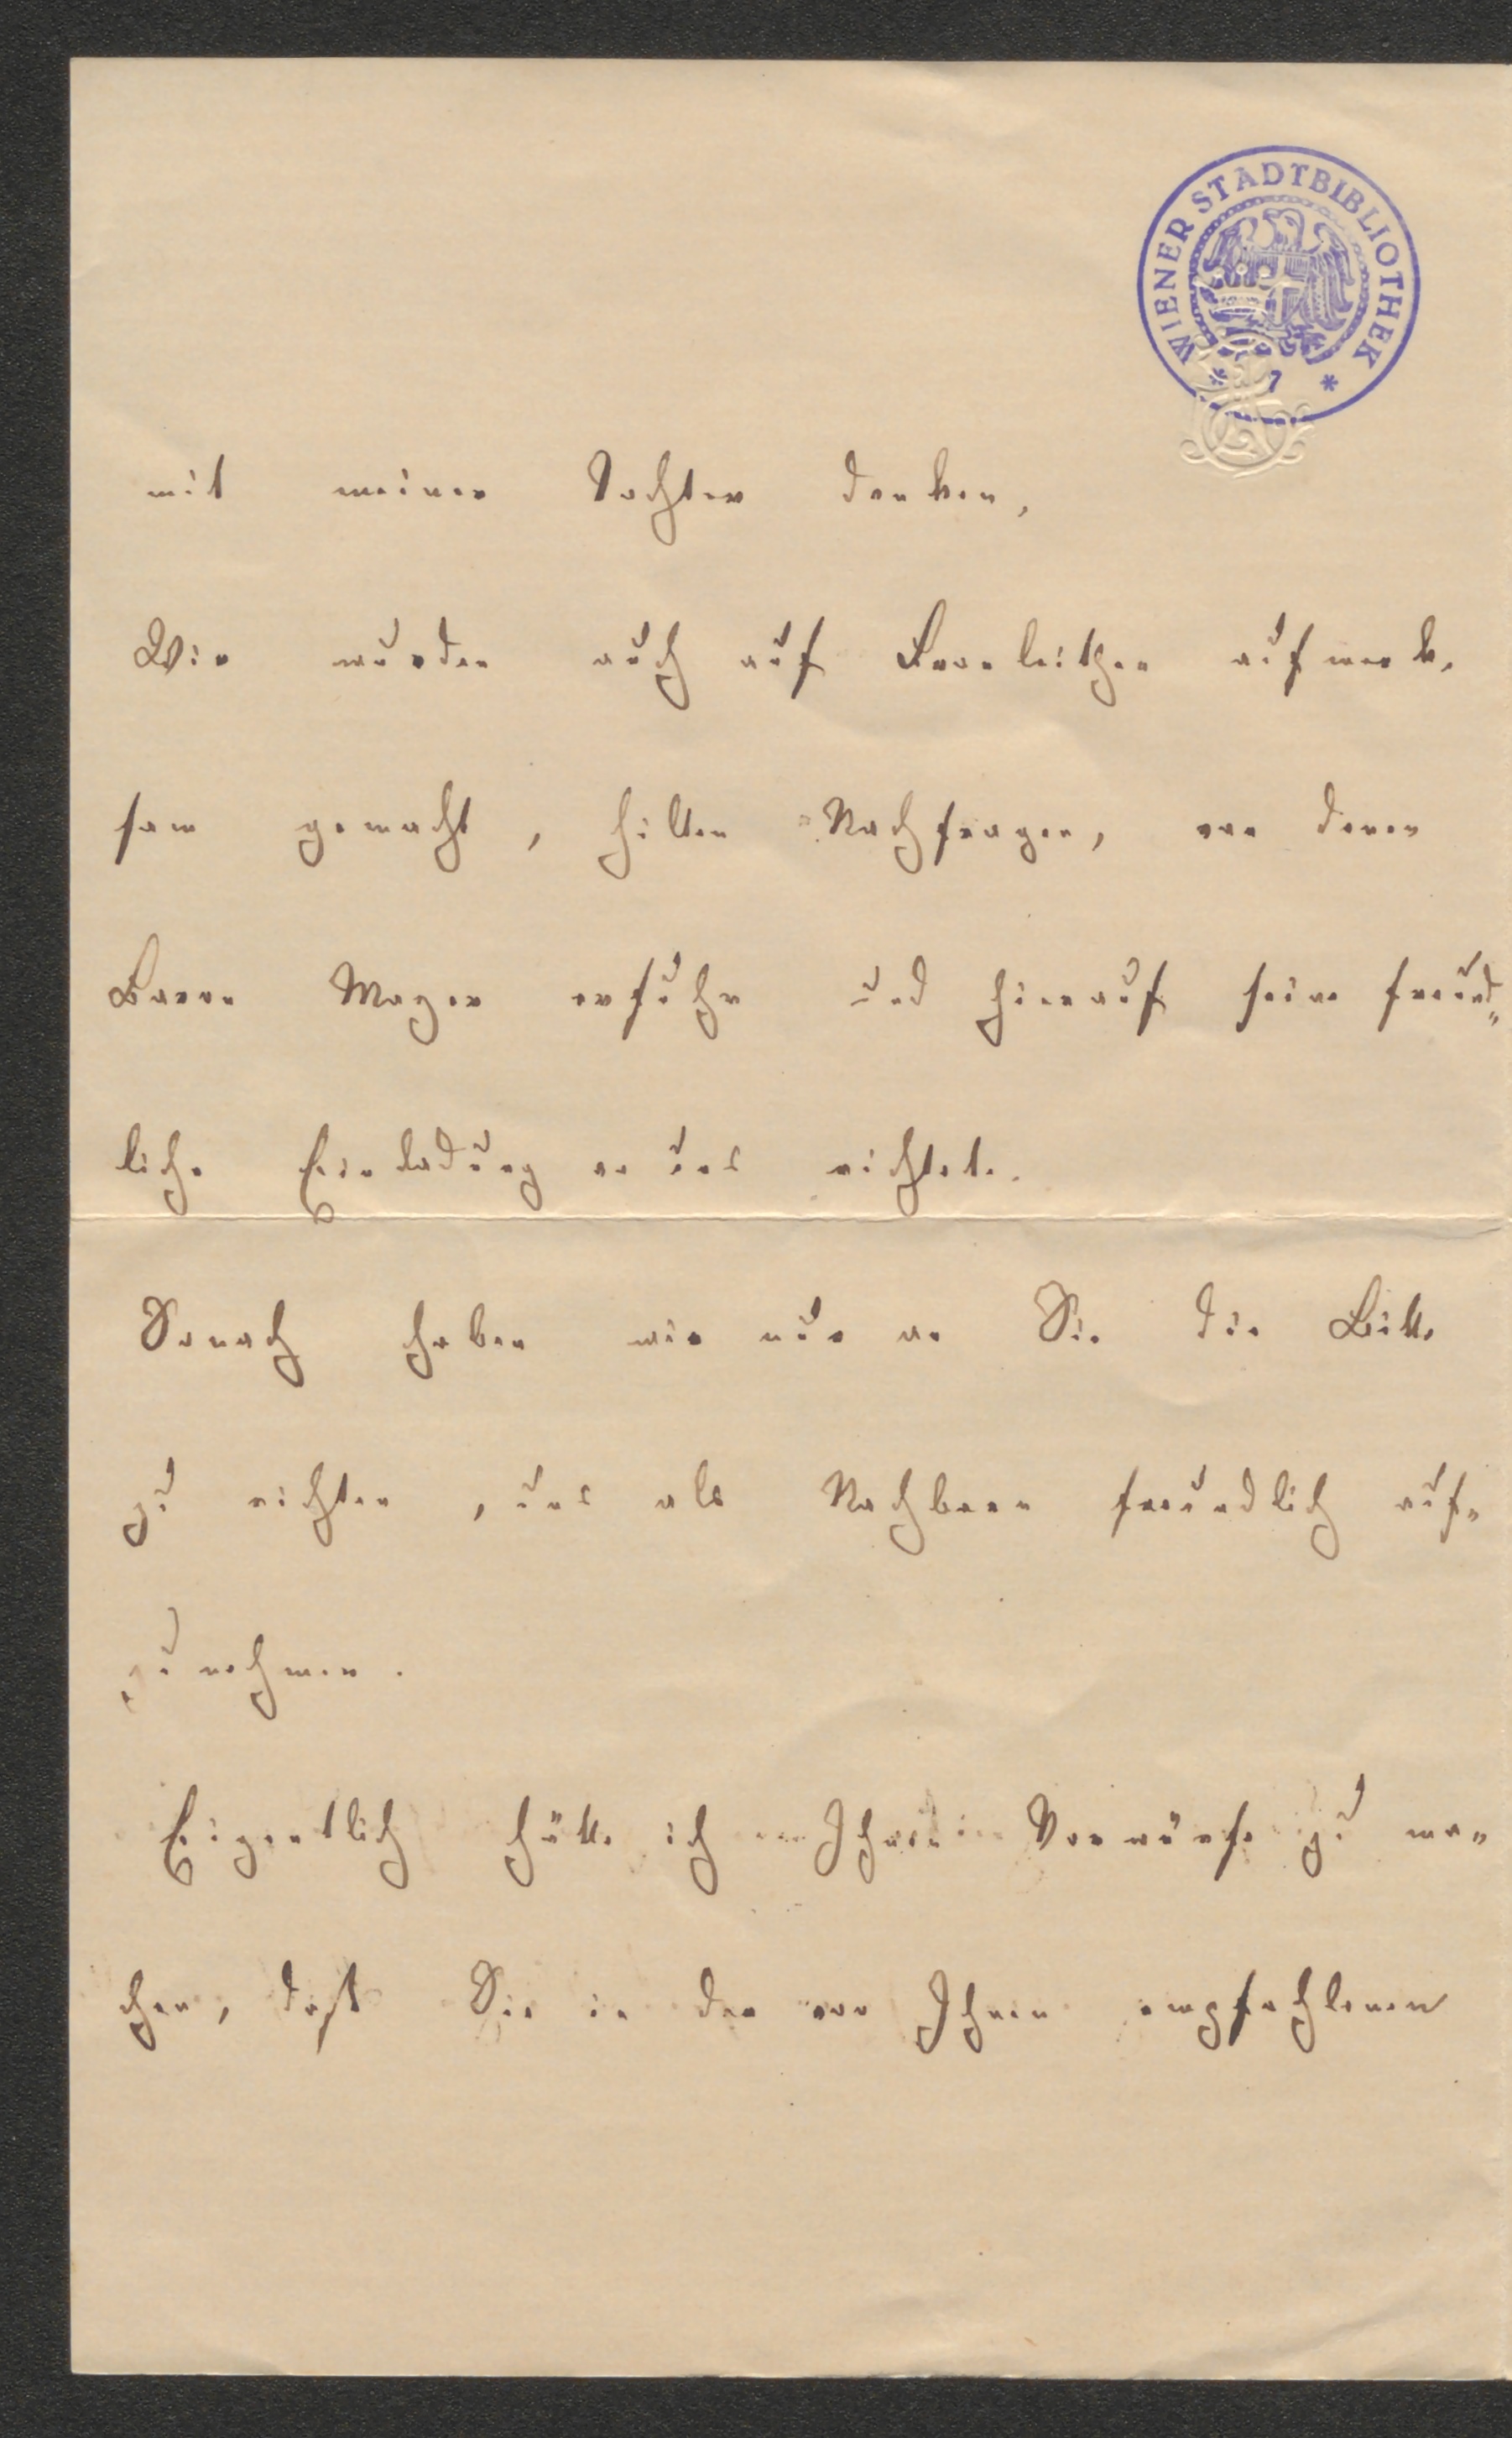 WIENER STADTBIBLIOTHEK
mit meiner Tochter danken,
Wir wurden auch auf Fernleithen aufmerk-
sam gemacht, hilten Nachfragen, von denen
Baron Mayer erfuhr und hierauf seine freund„
liche Einladung an uns richtete.
Sonach haben wir nur an Sie die Bitte
zu richten, uns als Nachbarn freundlich auf„
zunehmen.
Eigentlich hätte ich Ihnen Vorwürfe zu ma„
chen, daß Sie in den von Ihnen empfohlenen